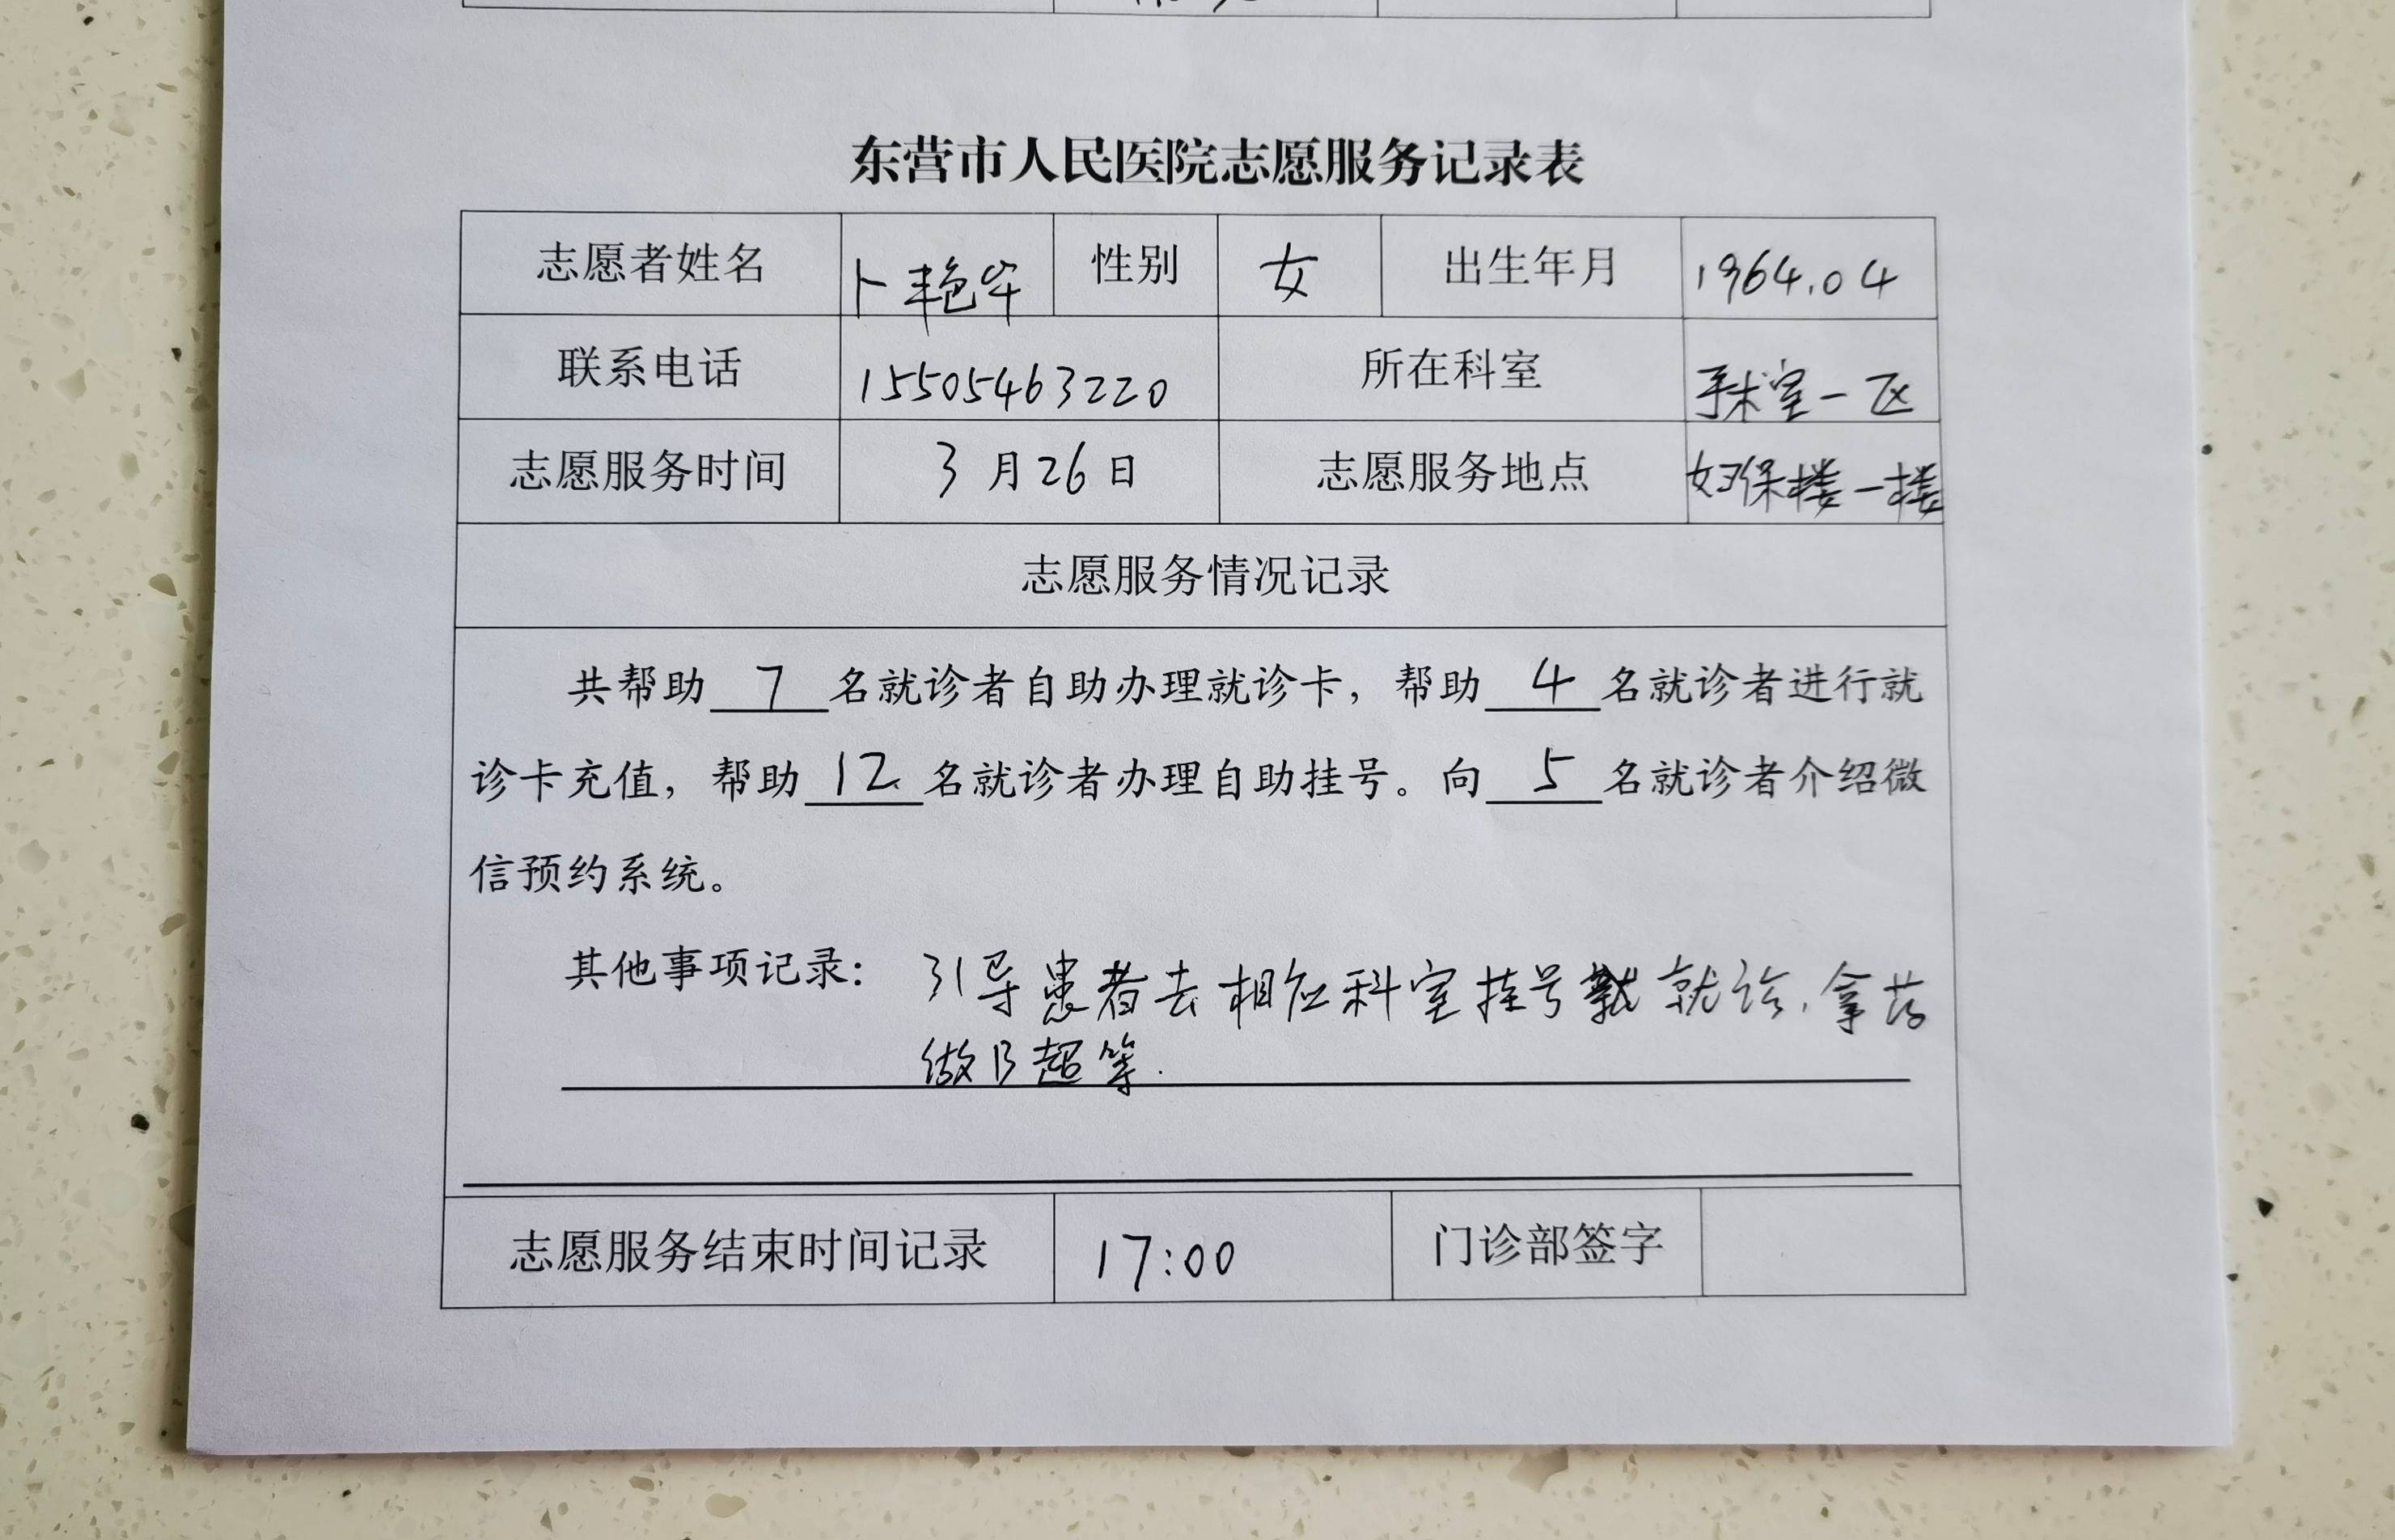 东营市人民医院志愿服务记录表
志愿者姓名 卜艳华 性别 女 出生年月 1964.04
联系电话 15505463220 所在科室 手术室一区
志愿服务时间 3月26日 志愿服务地点 妇保楼一楼
志愿服务情况记录
共帮助 7 名就诊者自助办理就诊卡，帮助 4 名就诊者进行就
诊卡充值，帮助 12 名就诊者办理自助挂号。向 5 名就诊者介绍微
信预约系统。
其他事项记录： 引导患者去相应科室挂号就诊，拿药
做B超等.
志愿服务结束时间记录 17:00 门诊部签字